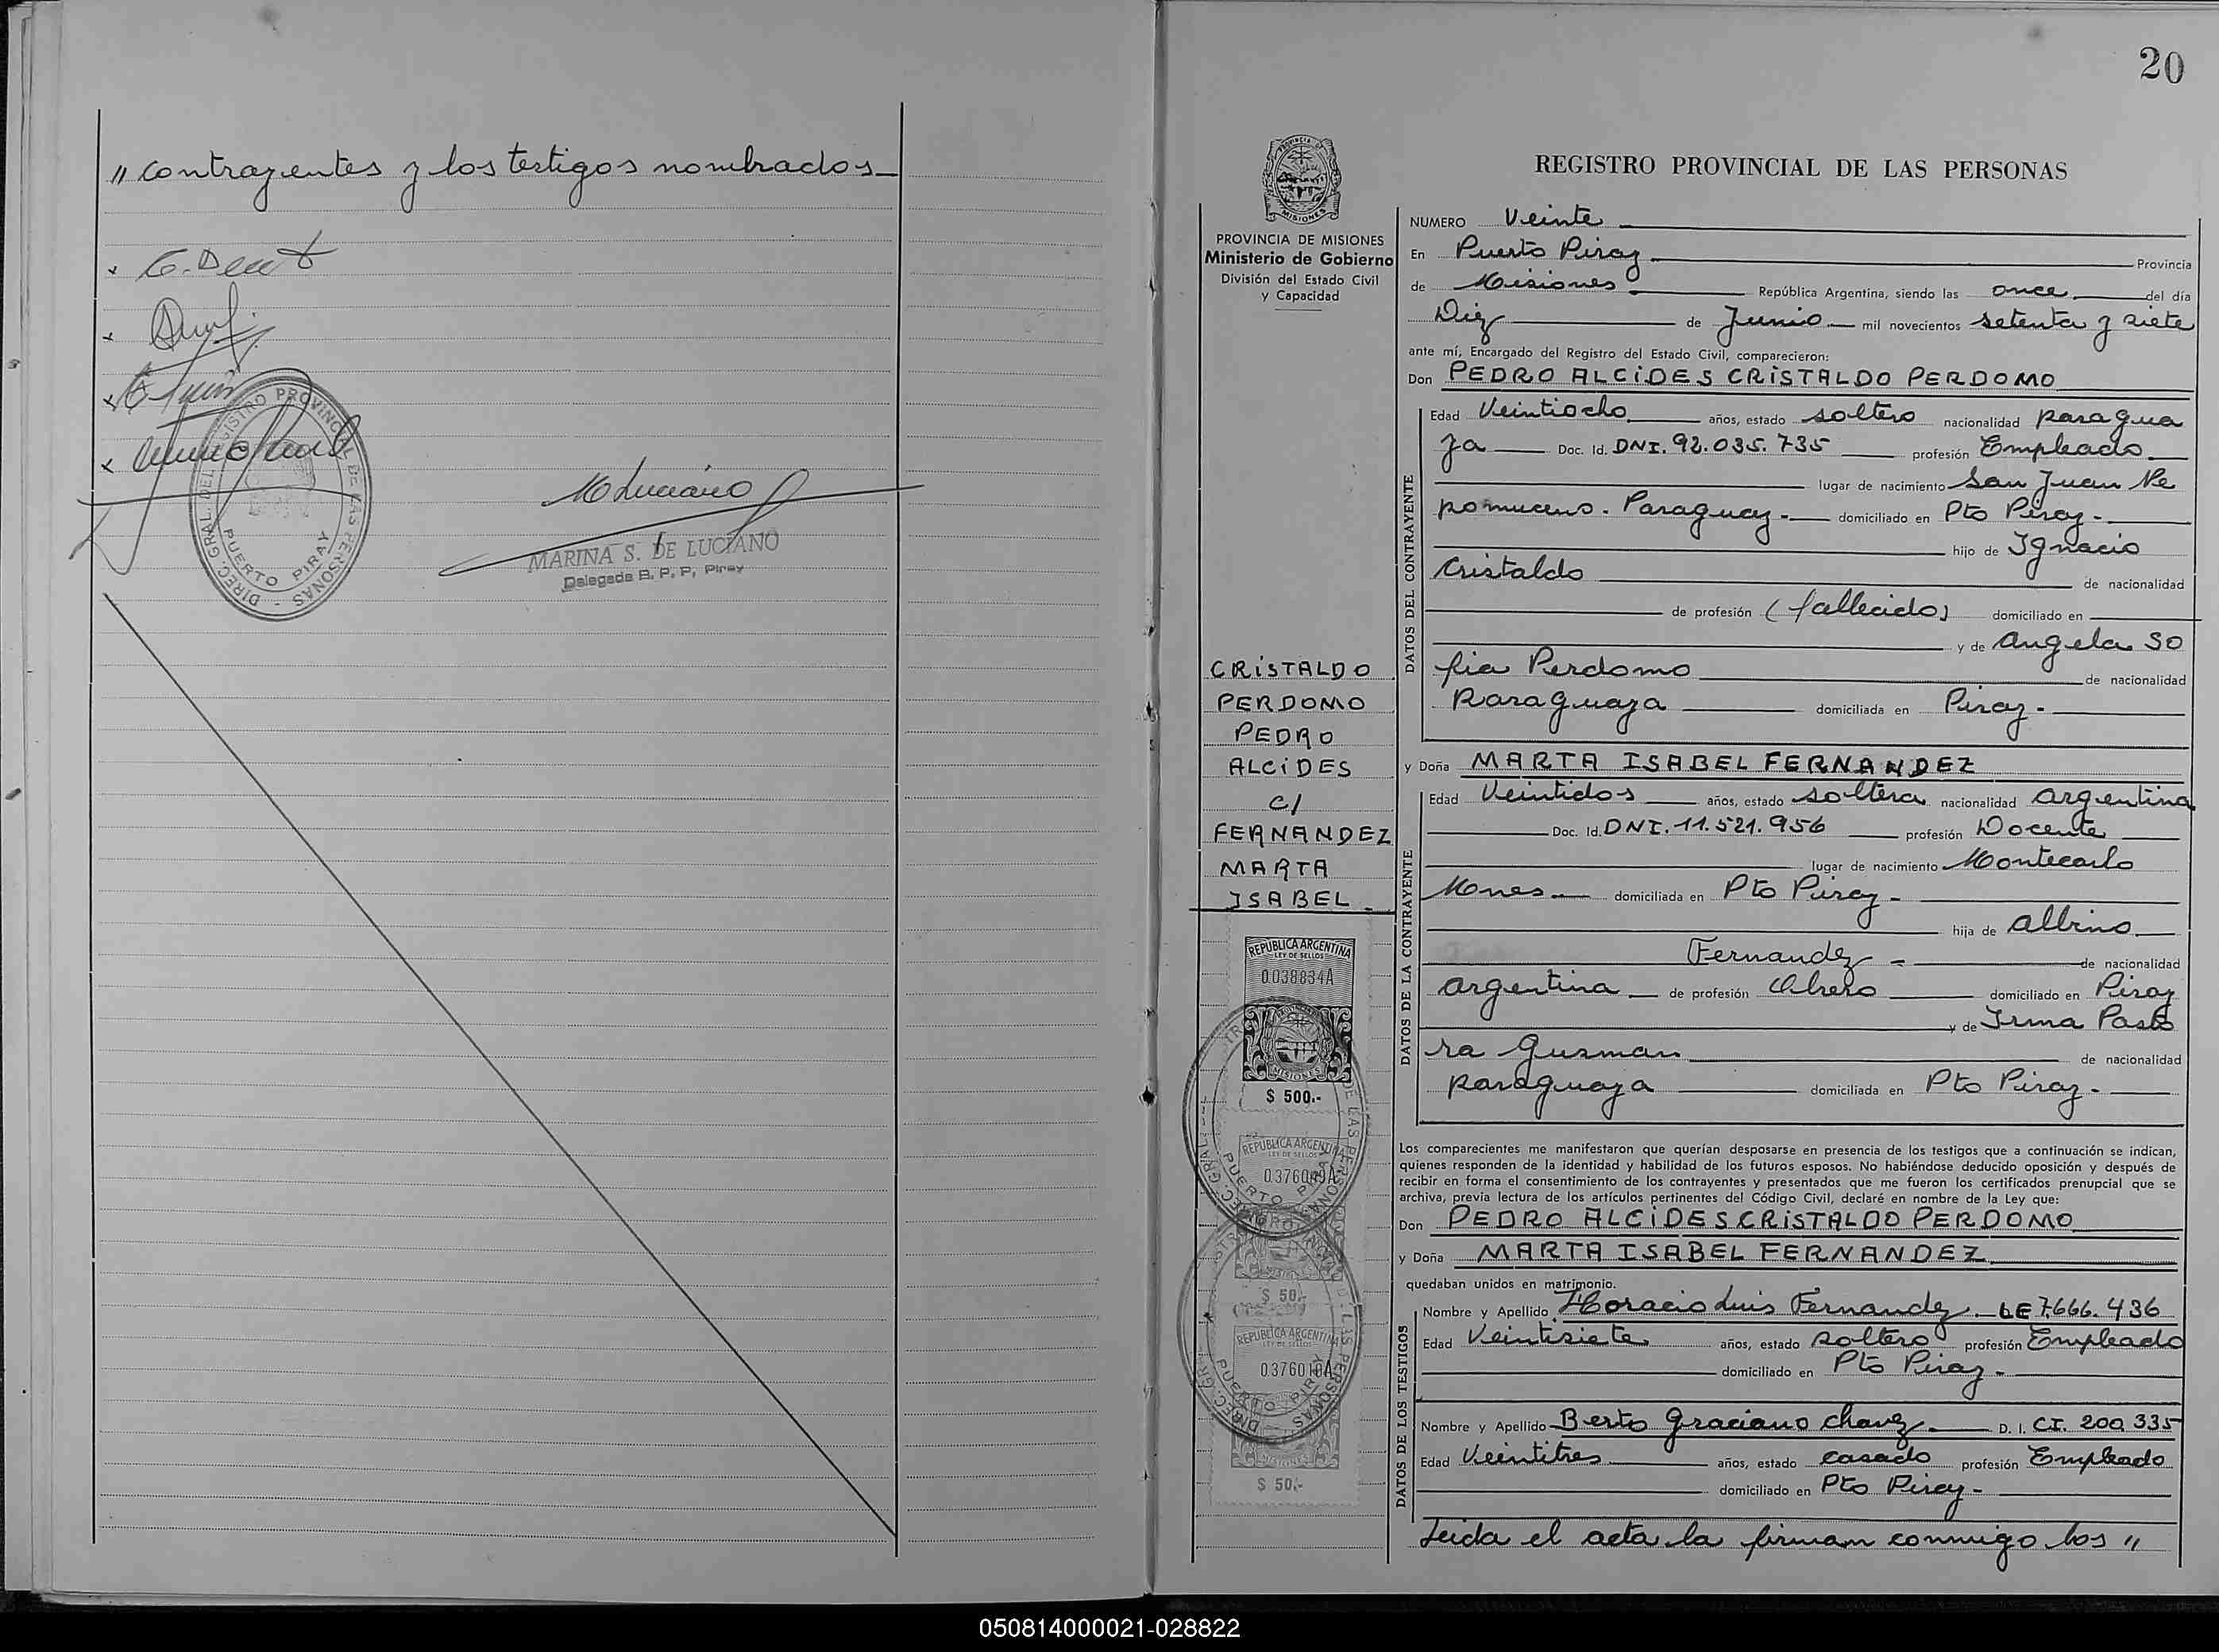 " contrayentes y los testigos nombrados_
DIREC. GRAL. DEL REGISTRO PROVINCIAL DE LAS PERSONAS -
PUERTO PIRAY
MARINA S. DE LUCIANO
Delegada R. P. P. Piray
20
MISIONES
PROVINCIA DE MISIONES
Ministerio de Gobierno
División del Estado Civil
y Capacidad
CRISTALDO
PERDOMO
PEDRO
ALCIDES
c/
FERNANDEZ
MARTA
ISABEL -
REPUBLICA ARGENTINA
LEY DE SELLOS
0038834A
MISIONES
$ 500.-
REPUBLICA ARGENTINA
LEY DE SELLOS
0376009A
$ 50.-
REPUBLICA ARGENTINA
LEY DE SELLOS
0376010A
MISIONES
$ 50.-
REGISTRO PROVINCIAL DE LAS PERSONAS
NUMERO Veinte
En Puerto Piray Provincia
de Misiones República Argentina, siendo las once del día
Diez de Junio mil novecientos setenta y siete
ante mí, Encargado del Registro del Estado Civil, comparecieron:
Don PEDRO ALCIDES CRISTALDO PERDOMO
DATOS DEL CONTRAYENTE
Edad Veintiocho años, estado soltero nacionalidad paragua
ya Doc. Id. DNI. 92.035.735 profesión Empleado
lugar de nacimiento San Juan Ne
pomuceno. Paraguay.- domiciliado en Pto Piray.-
hijo de Ignacio
Cristaldo de nacionalidad
de profesión (fallecido) domiciliado en
y de Angela So
fia Perdomo de nacionalidad
Paraguaya domiciliada en Piray.-
y Doña MARTA ISABEL FERNANDEZ
DATOS DE LA CONTRAYENTE
Edad Veintidos años, estado soltera nacionalidad argentina
Doc. Id. DNI. 11.521.956 profesión Docente
lugar de nacimiento Montecarlo
Mnes domiciliada en Pto Piray-
hija de Albino
Fernandez - de nacionalidad
argentina de profesión Obrero domiciliado en Piray
y de Irma Pasto
ra Guzman de nacionalidad
paraguaya domiciliada en Pto Piray.-
Los comparecientes me manifestaron que querían desposarse en presencia de los testigos que a continuación se indican,
quienes responden de la identidad y habilidad de los futuros esposos. No habiéndose deducido oposición y después de
recibir en forma el consentimiento de los contrayentes y presentados que me fueron los certificados prenupcial que se
archiva, previa lectura de los artículos pertinentes del Código Civil, declaré en nombre de la Ley que:
Don PEDRO ALCIDES CRISTALDO PERDOMO
y Doña MARTA ISABEL FERNANDEZ
quedaban unidos en matrimonio.
DATOS DE LOS TESTIGOS
Nombre y Apellido Horacio Luis Fernandez LE 7.666.436
Edad Veintisiete años, estado soltero profesión Empleado
domiciliado en Pto Piray-
Nombre y Apellido Berto Graciano Chavez D. I. CI. 200.335
Edad Veintitres años, estado casado profesión Empleado
domiciliado en Pto Piray-
Leida el acta la firman conmigo los "
050814000021-028822